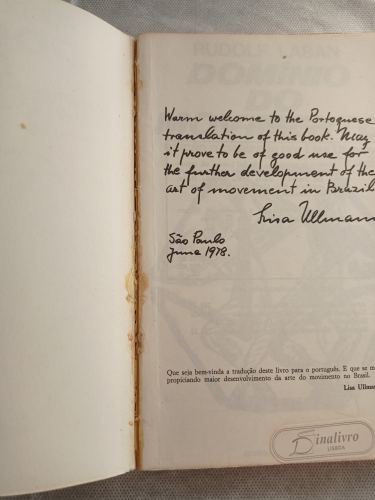 RUDOLF LABAN
DOMÍNIO
Warm welcome to the Portoguese
translation of this book. May
it prove to be of good use for
the further development of the
art of movement in Brazil
Lisa Ullmann
São Paulo
June 1978.
Que seja bem-vinda a tradução deste livro para o português. E que se m
propiciando maior desenvolvimento da arte do movimento no Brasil.
Lisa Ullma
Dinalivro
LISBOA